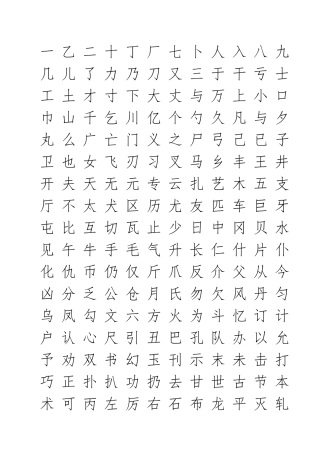 一乙二十丁厂七卜人入八九
几儿了力乃刀又三于干亏士
工土才寸下大丈与万上小口
巾山千乞川亿个勺久凡及夕
丸么广亡门义之尸弓己已子
卫也女飞刃习叉马乡丰王井
开夫天无元专云扎艺木五支
厅不太犬区历尤友匹车巨牙
屯比互切瓦止少日中冈贝水
见午牛手毛气升长仁什片仆
化仇币仍仅斤爪反介父从今
凶分乏公仓月氏勿欠风丹匀
乌凤勾文六方火为斗忆订计
户认心尺引丑巴孔队办以允
予劝双书幻玉刊示末未击打
巧正扑扒功扔去甘世古节本
术可丙左厉右石布龙平灭轧